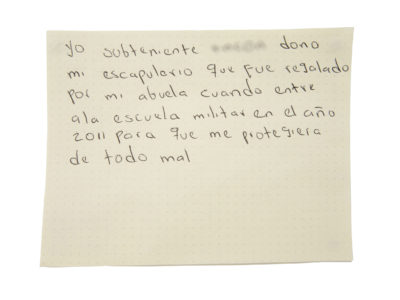 yo subteniente dono
mi escapulario que fue regalado
por mi abuela cuando entre
ala escuela militar en el año
2011 para que me protegiera
de todo mal